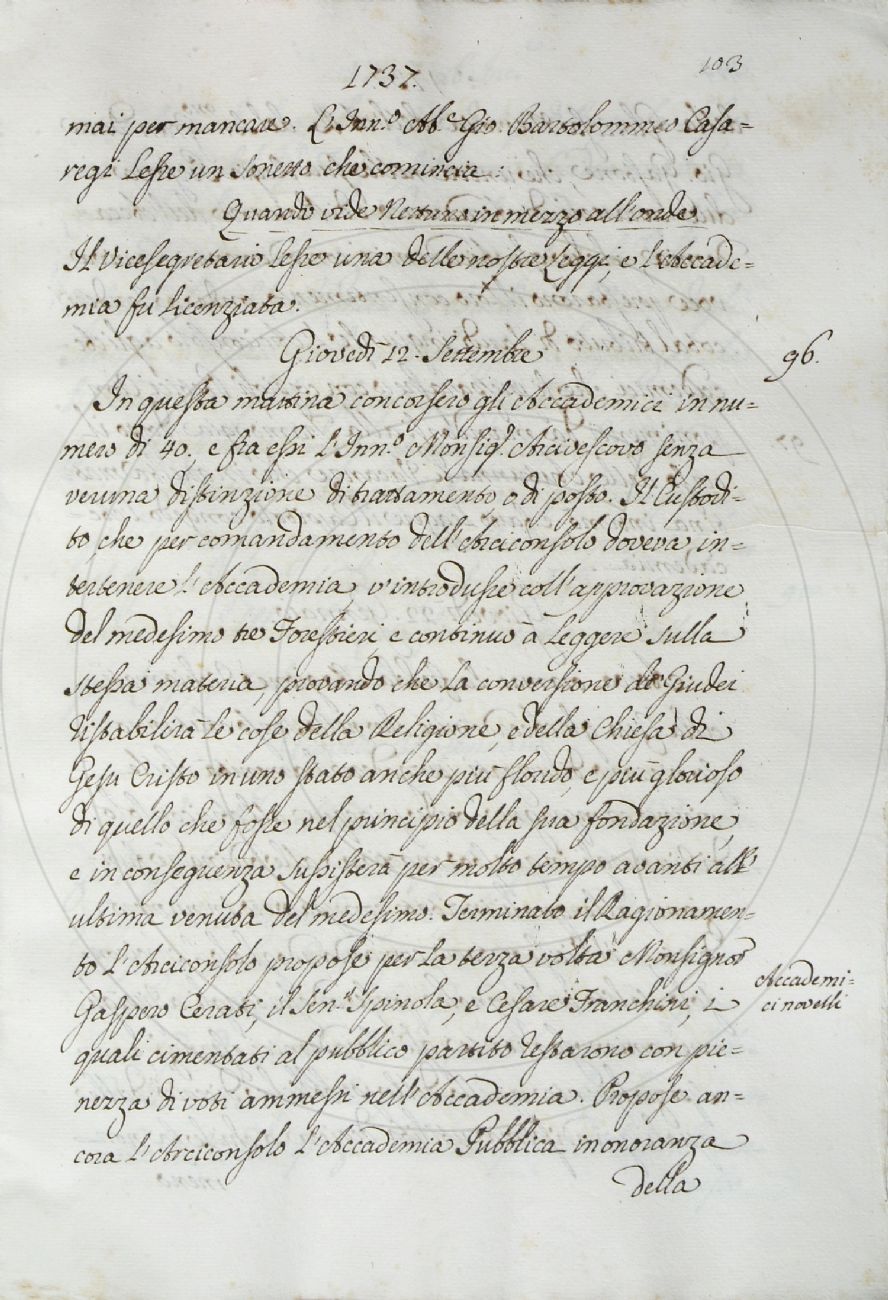 1737.
103
mai per mancare. L'Inn.º Ab.e Gio. Bartolommeo Casa=
regi Lesse un Sonetto che comincia:
Quando vide Nettuno in mezzo all'onde.
Il Vicesegretario lesse una delle nostre Leggi, e l'Accade=
mia fu licenziata.
Giovedì 12. Settembre
96.
In questa mattina concorsero gli Accademici in nu=
mero di 40. e fra essi l'Inn.º Monsig.r Arcivescovo senza
veruna distinzione di trattamento, o di posto. Il Custodi=
to, che per comandamento dell'Arciconsolo doveva in=
tertenere l'Accademia, v'introdusse coll'approvazione
del medesimo tre Forestieri, e continuò à leggere sulla
stessa materia, provando che la conversione de' Giudei
ristabilirà le cose della Religione, e della Chiesa di
Gesu Cristo in uno stato anche più florido, e più glorioso
di quello che fosse nel principio della sua fondazione,
e in conseguenza sussisterà per molto tempo avanti all'
ultima venuta del medesimo. Terminato il Ragionamen=
to l'Arciconsolo propose per la terza volta Monsignor
Gaspero Cerati, il Sen.r Spinola, e Cesare Franchini, i
Accademi=
ci novelli
quali cimentati al pubblico partito restarono con pie=
nezza di voti ammessi nell'Accademia. Propose an=
cora l'Arciconsolo l'Accademia Pubblica in onoranza
della